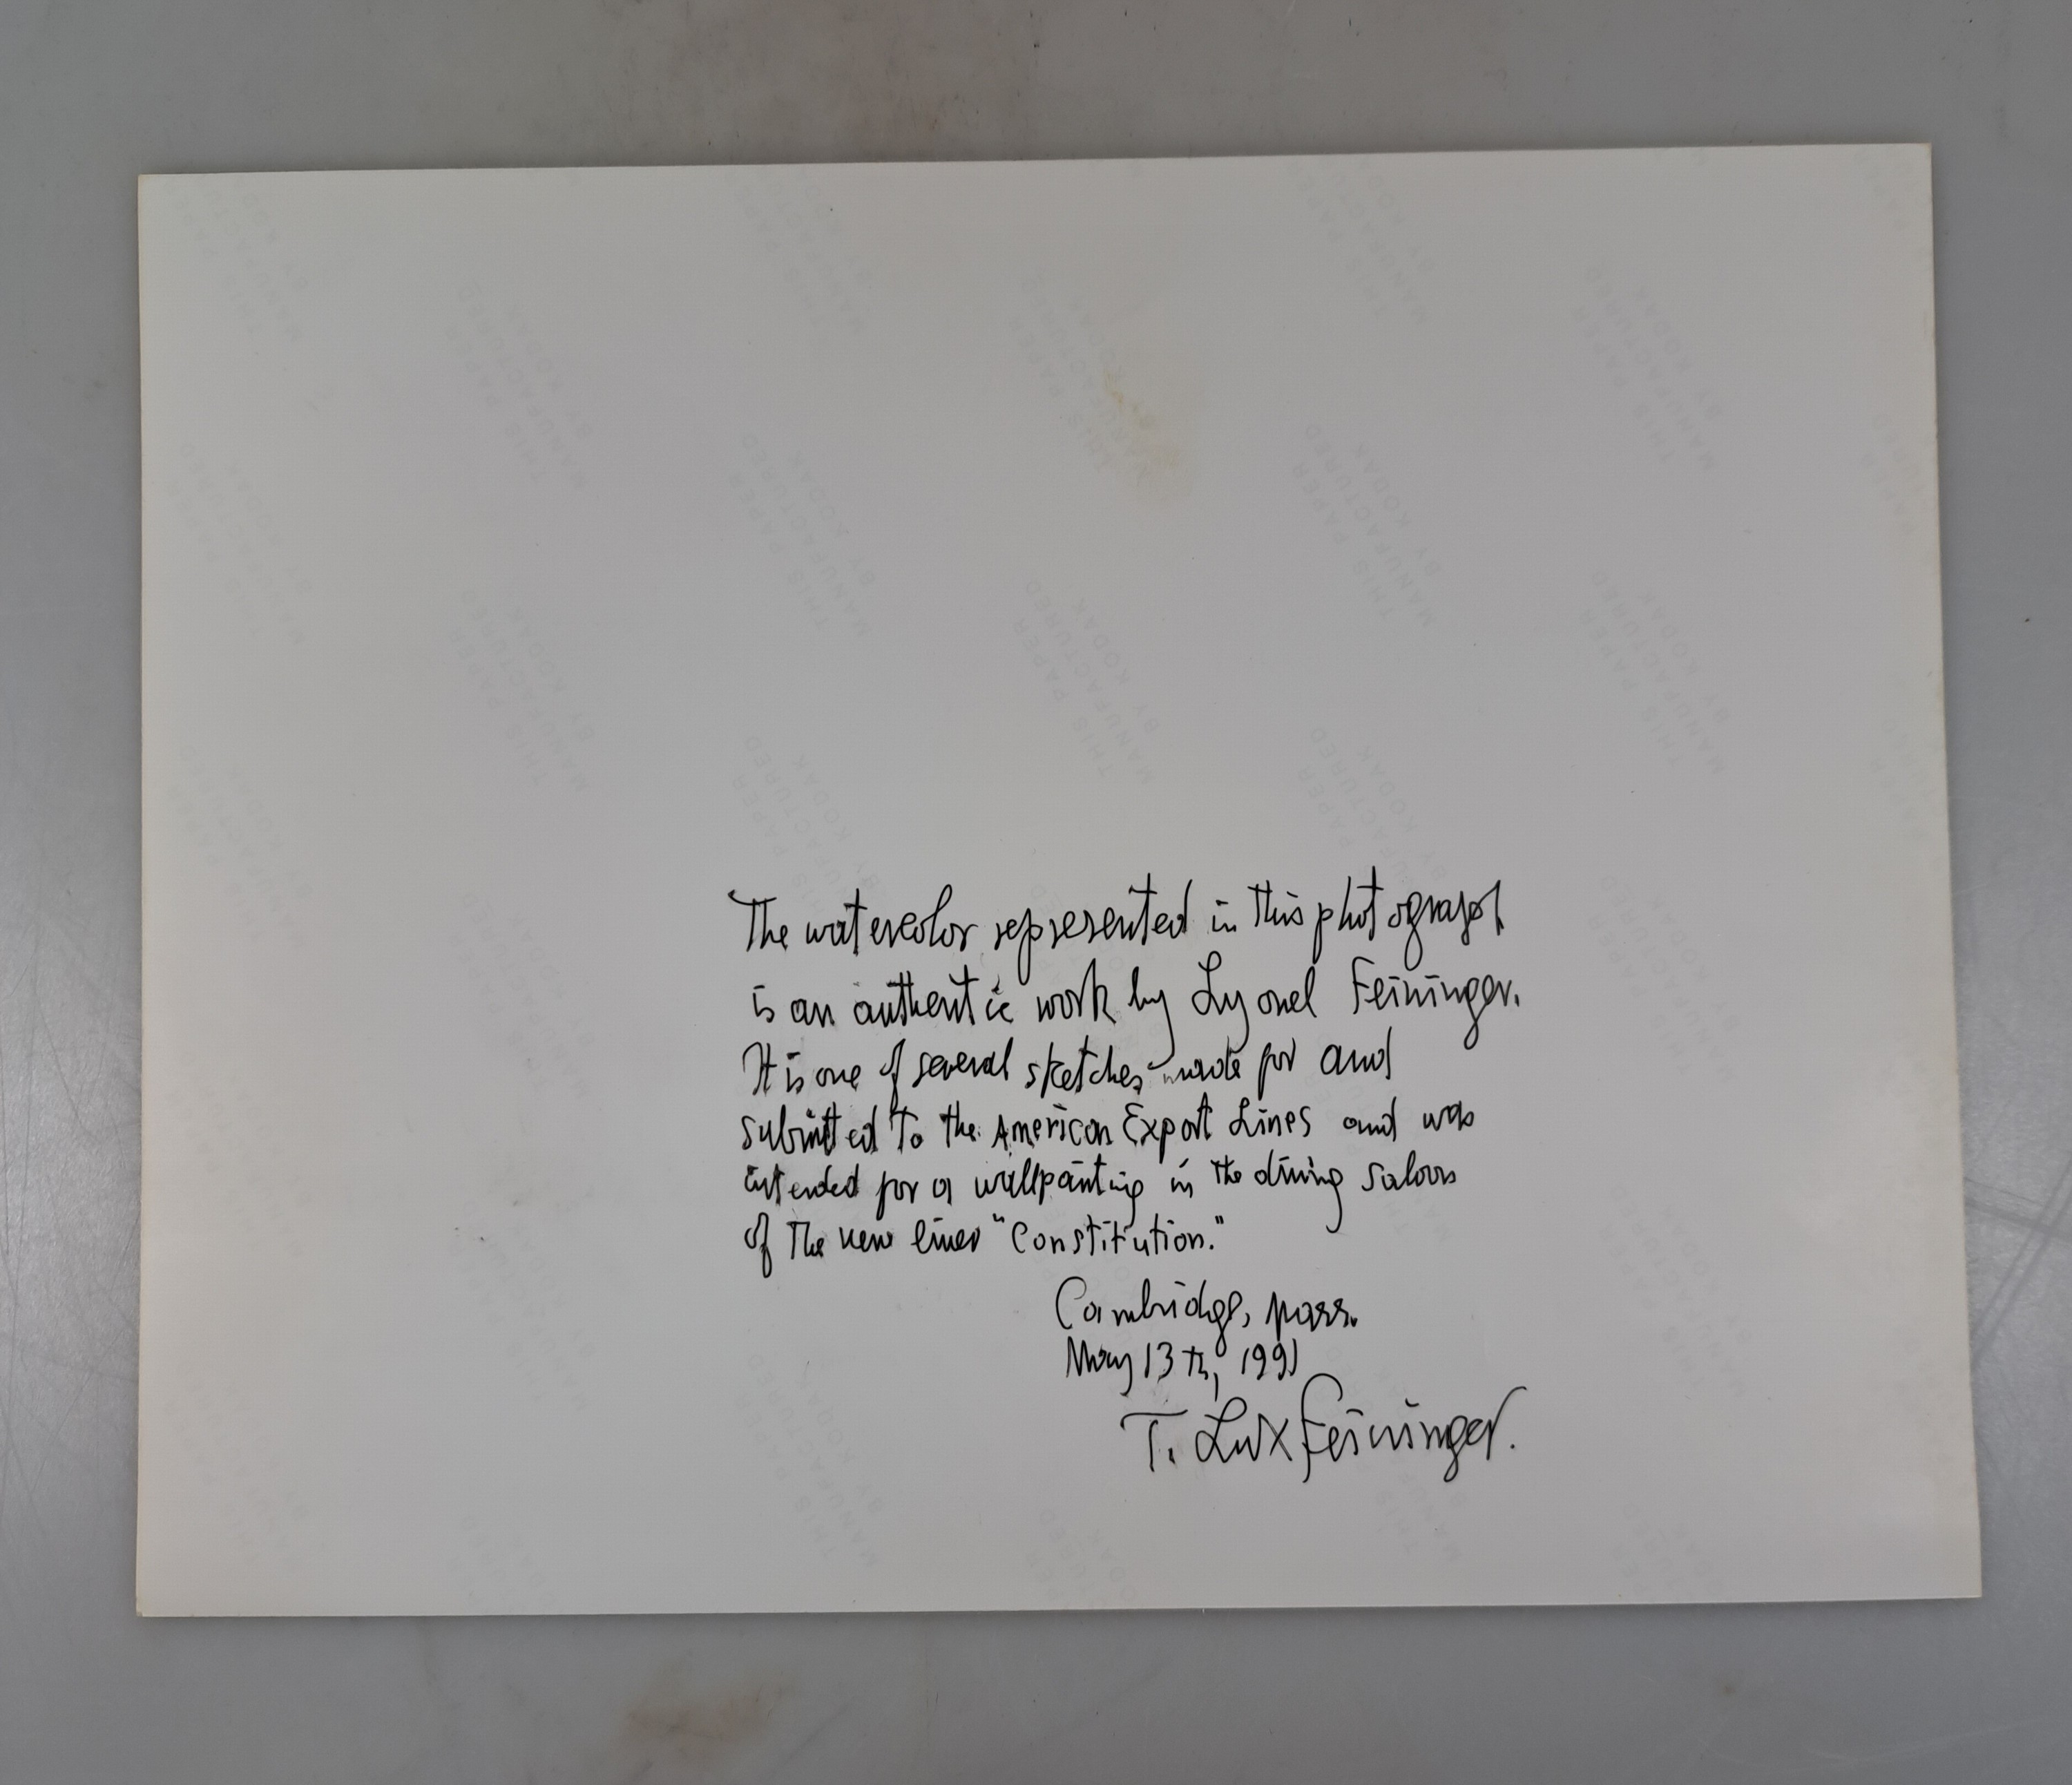 The watercolor represented in this photograph
is an authentic work by Lyonel Feininger.
It is one of several sketches made for and
submitted to the American Export Lines and was
intended for a wallpainting in the dining saloon
of the new liner "Constitution."
Cambridge, Mass.
May 13th, 1991
T. Lux Feininger.
THIS PAPER
MANUFACTURED
BY KODAK